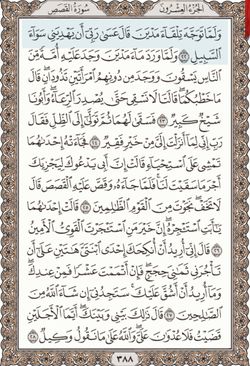 الجزء العشرون سورة القصص
ولما توجه تلقاء مدين قال عسى ربي أن يهديني سواء
السبيل ٢٢ ولما ورد ماء مدين وجد عليه أمة من
الناس يسقون ووجد من دونهم امرأتين تذودان قال
ما خطبكما قالتا لا نسقي حتى يصدر الرعاء وأبونا
شيخ كبير ٢٣ فسقى لهما ثم تولى إلى الظل فقال
رب إني لما أنزلت إلي من خير فقير ٢٤ فجاءته إحداهما
تمشي على استحياء قالت إن أبي يدعوك ليجزيك
أجر ما سقيت لنا فلما جاءه وقص عليه القصص قال
لا تخف نجوت من القوم الظالمين ٢٥ قالت إحداهما
يا أبت استأجره إن خير من استأجرت القوي الأمين
٢٦ قال إني أريد أن أنكحك إحدى ابنتي هاتين على أن
تأجرني ثماني حجج فإن أتممت عشرا فمن عندك
وما أريد أن أشق عليك ستجدني إن شاء الله من
الصالحين ٢٧ قال ذلك بيني وبينك أيما الأجلين
قضيت فلا عدوان علي والله على ما نقول وكيل ٢٨
٣٨٨